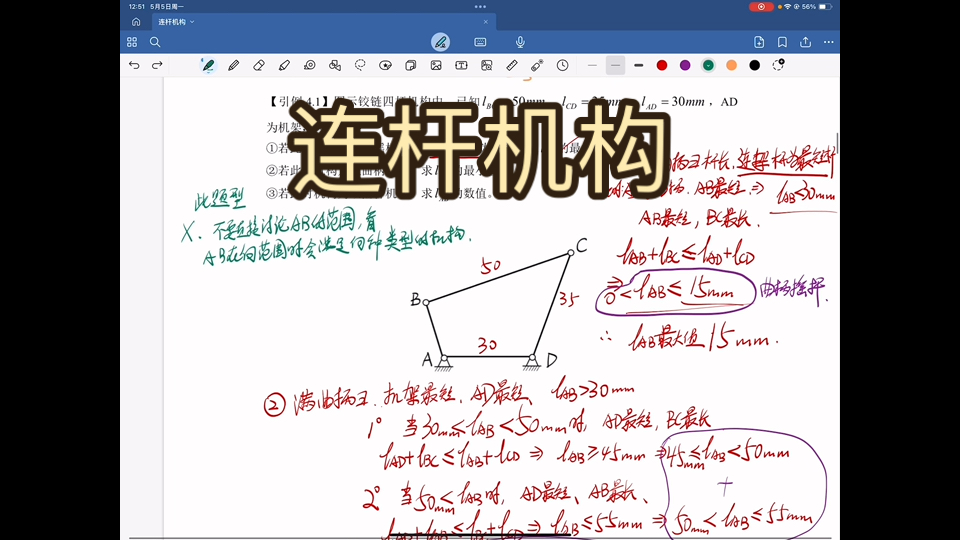 12:51 5月5日周一
56%
连杆机构
连杆机构
【引例 4.1】图示铰链四杆机构中，已知 l 50mm l_CD = 35mm l_AD = 30mm，AD
为机架
①若此
②若此 求 的最小
③若 机 求 的数值。
此题型
X. 不要直接讨论AB的范围，看
AB在何范围时会满足何种类型的机构.
杆长，连架杆为最短杆
AB最短 ⇒ l_AB<30mm
AB最短，BC最长.
l_AB+l_BC≤l_AD+l_CD
⇒ 0<l_AB≤15mm 曲柄摇杆.
∴ l_AB最大值15mm.
B 50 C
35
A 30 D
② 满 机架最短、AD最短、l_AB>30mm
1° 当30mm≤l_AB<50mm时，AD最短，BC最长
l_AD+l_BC≤l_AB+l_CD ⇒ l_AB≥45mm ⇒ 45mm≤l_AB<50mm
+
2° 当50mm<l_AB时，AD最短、AB最长、
l_AD+l_AB≤l_BC+l_CD ⇒ l_AB≤55mm ⇒ 50mm<l_AB≤55mm